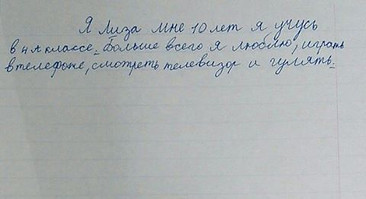 Я Лиза мне 10 лет я учусь
в 4 А классе. Больше всего я люблю, играть
в телефоне, смотреть телевизор и гулять.